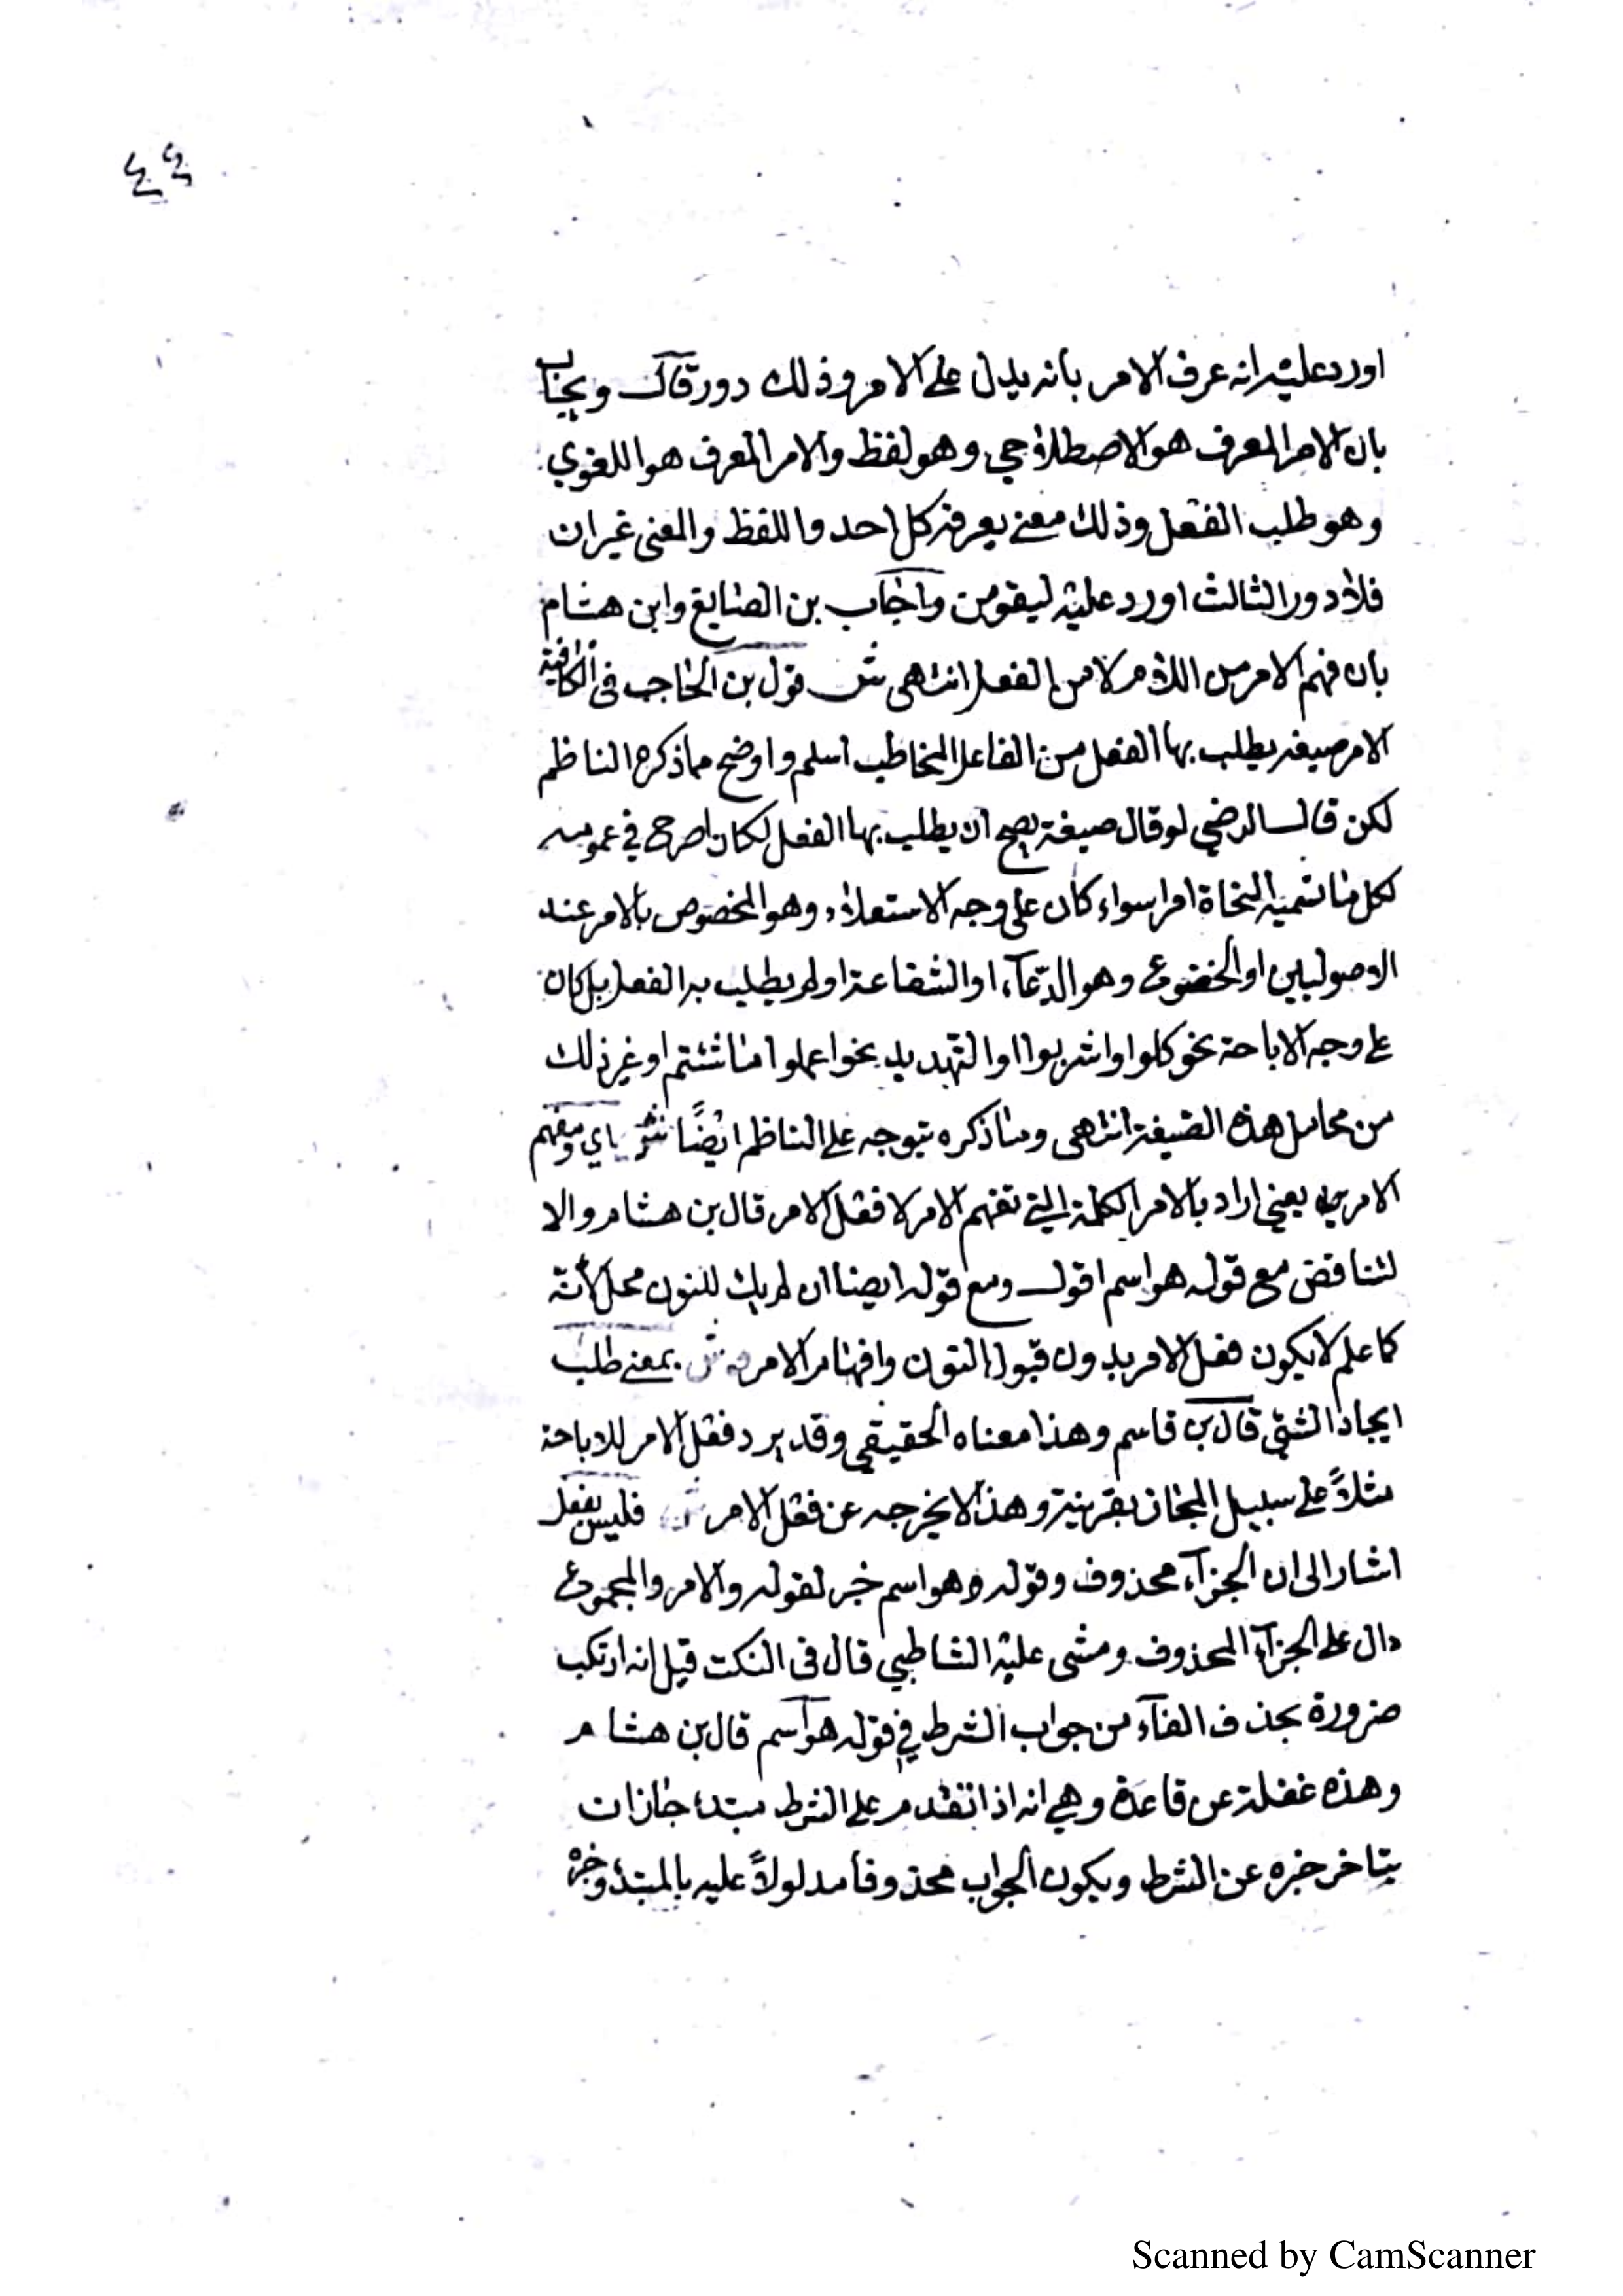 ٤٤
اورد عليه انه عرف الامر بانه يدل على الامر وذلك دور قال ويجاب
بان الامر المعرف هو الاصطلاحي وهو لفظ والامر المعرف هو اللغوي
وهو طلب الفعل وذلك معنى يعرفه كل احد واللفظ والمعنى غيران
فلا دور الثالث اورد عليه ليقومن واجاب بن الصايغ وابن هشام
بان فهم الامر من اللام لا من الفعل انتهى ش قول بن الحاجب فى الكافية
الامر صيغه يطلب بها الفعل من الفاعل المخاطب اسلم واوضح مما ذكره الناظم
لكن قال الرضي لو قال صيغة يصح ان يطلب بها الفعل لكان اصرح في عمومه
لكل ما تسميه النحاة امرا سواء كان على وجه الاستعلاء وهو المخصوص بالامر عند
الاصوليين او الخضوع وهو الدعآء او الشفاعة او لم يطلب به الفعل بل كان
على وجه الاباحة نحو كلوا واشربوا او التهديد نحو اعملوا ما شئتم او غير ذلك
من محامل هذه الصيغة انتهى وما ذكره يتوجه على الناظم ايضًا ش اي ومفهم
الامر به يعني اراد بالامر الكلمة التي تفهم الامر لا فعل الامر قال بن هشام والا
لتناقض مع قوله هو اسم اقول ومع قوله ايضا ان لم يك للنون محل لأنه
كما علم لا يكون فعل الامر بدون قبول النون وافهام الامر ش بمعنى طلب
ايجاد الشئ قال بن قاسم وهذا معناه الحقيقي وقد يرد فعل الامر للاباحة
مثلاً على سبيل المجاز بقرينة وهذا لا يخرجه عن فعل الامر ش فليس بفعل
اشار الى ان الجزآء محذوف وقوله وهو اسم خبر لقوله والامر والمجموع
دال على الجزآء المحذوف ومشى عليه الشاطبي قال فى النكت قيل انه ارتكب
ضرورة بحذف الفآء من جواب الشرط في قوله هو اسم قال بن هشام
وهذه غفلة عن قاعدة وهي انه اذا تقدم على الشرط مبتدء جاز ان
يتاخر خبره عن الشرط ويكون الجواب محذوفا مدلولاً عليه بالمبتدء وخبره
Scanned by CamScanner